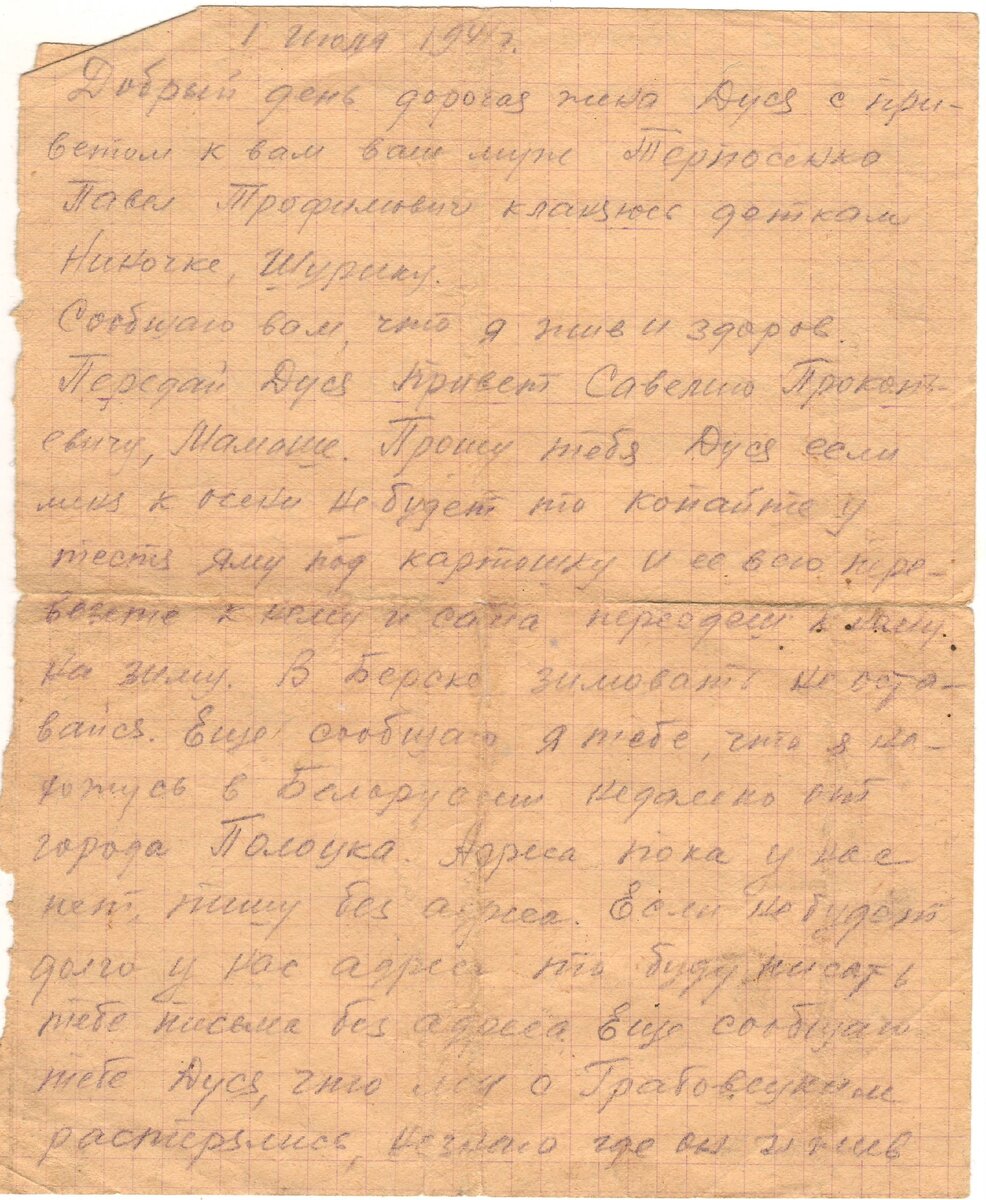 1 Июля 194 г.
Добрый день дорогая жена Дуся с при-
ветом к вам ваш муж
Павел Трофимович кланяюсь деткам
Ниночке, Шурику.
Сообщаю вам, что я жив и здоров.
Передай Дуся привет Савелию Прокопь-
евичу, Мамаше. Прошу тебя Дуся если
меня к осени не будет то копайте у
тестя яму под картошку и ее всю пере-
везете к нему и сама переедеш к нему
на зиму. В Берске зимовать не оста-
вайся. Еще сообщаю я тебе, что я на-
хожусь в Белоруссии недалеко от
города Полоцка. Адреса пока у нас
нет, пишу без адреса. Если не будет
долго у нас адреса то буду писать
тебе письма без адреса. Еще сообщаю
тебе Дуся, что мы с Грабовецким
растерялись, незнаю где он и жив